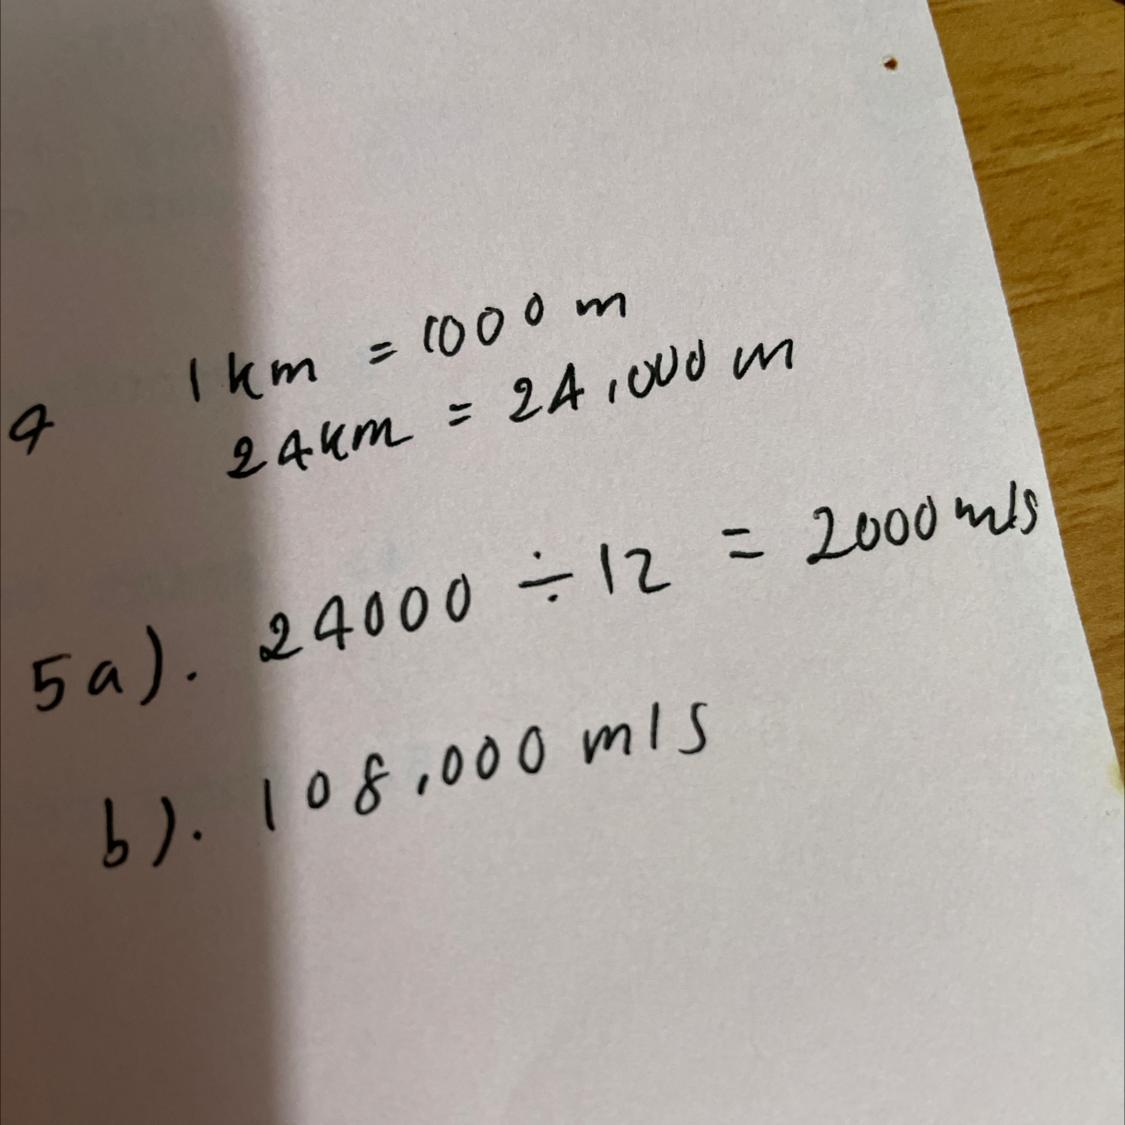 4
1 km = 1000 m
24 km = 24,000 m
5a). 24000 ÷ 12 = 2000 m/s
b). 108,000 m/s